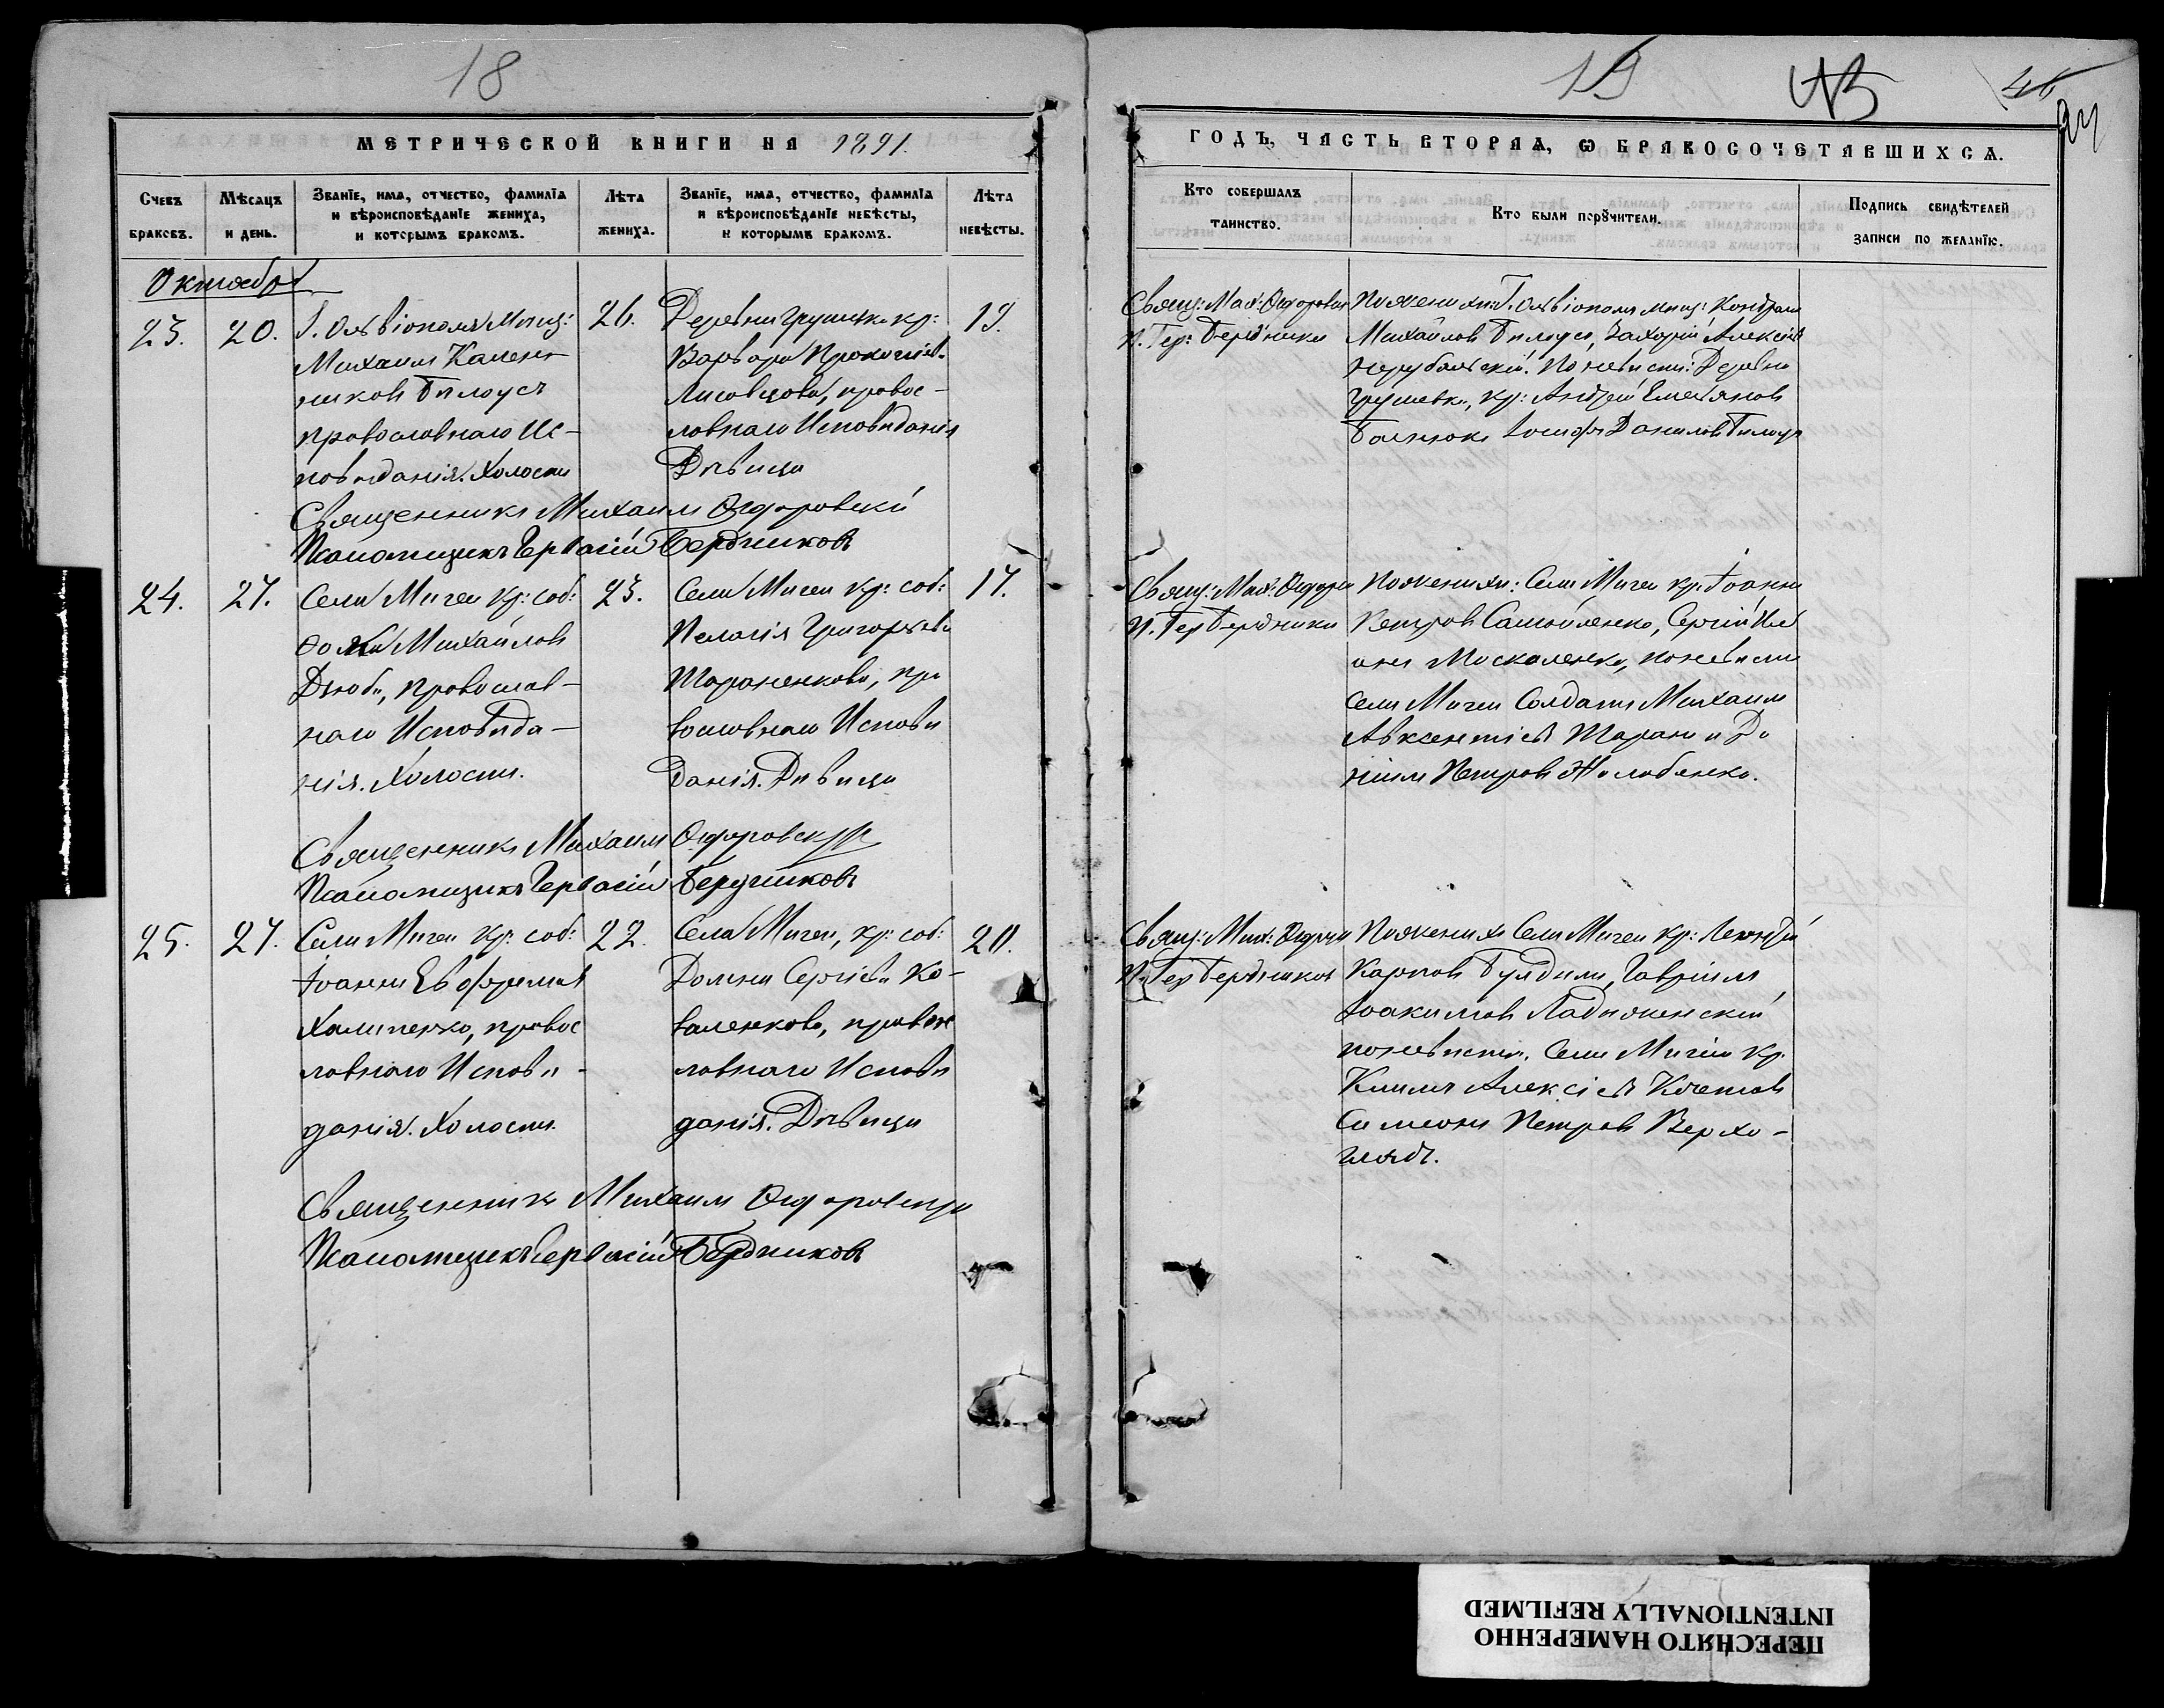 18
МЕТРИЧЕСКОЙ КНИГИ НА 1891.
Счетъ браковъ.
Мѣсяцъ и день.
Званіе, имя, отчество, фамилія и вѣроисповѣданіе жениха, и которымъ бракомъ.
Лѣта жениха.
Званіе, имя, отчество, фамилія и вѣроисповѣданіе невѣсты, и которымъ бракомъ.
Лѣта невѣсты.
Октябрь
23.
20.
Г. Ольвіополя Мѣщ:
Михаилъ
Билоусъ
православнаго Ис-
повѣданія. Холостъ
26.
Деревни Грушевки кр:
Варвара Прокопіева
Лисовцова, правос-
лавнаго Исповѣданія
Дѣвица
19.
Священникъ Михаилъ Ѳедоровскій
Псаломщикъ Гервасій Бердниковъ
24.
27.
Села Мигеи кр: соб:
Ѳома Михайловъ
Дзюба, православ-
наго Исповѣда-
нія. Холостъ.
23.
Села Мигеи кр: соб:
Пелагія Григорьева
Тараненкова, пра
вославнаго Исповѣ
данія. Дѣвица
17.
Священникъ Михаилъ Ѳедоровскій
Псаломщикъ Гервасій Бердниковъ
25.
27.
Села Мигеи кр: соб:
Іоаннъ Евфимовъ
Халипенко, правос
лавнаго Исповѣ-
данія. Холостъ.
22.
Села Мигеи, кр: соб:
Домна Сергіева Ко-
валенкова, правос
лавнаго Исповѣ
данія. Дѣвица
20.
Священникъ Михаилъ Ѳедоровскій
Псаломщикъ Гервасій Бердниковъ
19
ГОДЪ, ЧАСТЬ ВТОРАЯ, Ѡ БРАКОСОЧЕТАВШИХСЯ.
Кто совершалъ таинство.
Кто были поручители.
Подпись свидѣтелей записи по желанію.
Свящ: Мих: Ѳедоровскій
П. Гер: Бердниковъ
По женихѣ: Г. Ольвіополя мѣщ: Кондратъ
Михайловъ Билоусъ, Захарій Алексіевъ
Нерубальскій. По невѣстѣ: Деревни
Грушевки, кр: Андрей Емельяновъ
Іосифъ Даниловъ Билоусъ
Свящ: Мих: Ѳедоров
П. Гер Бердниковъ
По женихѣ: Села Мигеи кр: Іоаннъ
Петровъ Самойленко, Сергій
Москаленко, по невѣстѣ
села Мигеи Солдатъ Михаилъ
Авксентіевъ Таранъ и Да
ніилъ Петровъ Жолобенко.
Свящ: Мих: Ѳедоров
П. Гер Бердниковъ
По женихѣ Села Мигеи кр:
Карповъ Гавріилъ
Іоакимовъ Ладыженскій
по невѣстѣ. Села Мигеи кр.
Климъ Алексіевъ Кочетовъ
Симеонъ Петровъ Верхо-
глядъ.
ПЕРЕСНЯТО НАМЕРЕННО
INTENTIONALLY REFILMED